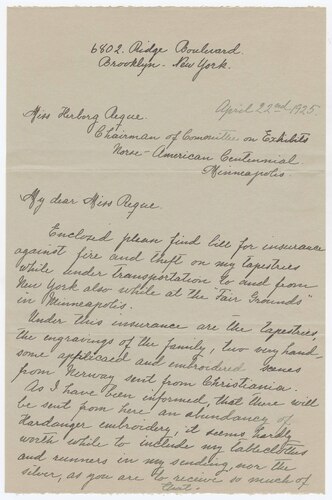 6802 Ridge Boulevard.
Brooklyn - New York.
April 22nd 1925
Miss Herborg Reque
Chairman of Committee on Exhibits
Norse-American Centennial
Minneapolis.
My dear Miss Reque.
Enclosed please find bill for insurance
against fire and theft on my tapestries
while under transportation to and from
New York also while at the "Fair Grounds"
in Minneapolis.
Under this insurance are the tapestries,
the engravings of the family, two very hand-
some appliqued and embroidered scenes
from Norway sent from Christiania.
As I have been informed, that there will
be sent from here an abundancy of
Hardanger embroidery, it seems hardly
worth while to include my tablecloths
and runners in my sending, nor the
silver, as you are to receive so much of